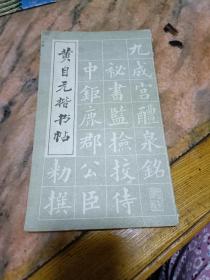 黄自元楷书帖
九成宫醴泉铭
秘书监检校侍
中钜鹿郡公臣
勒撰